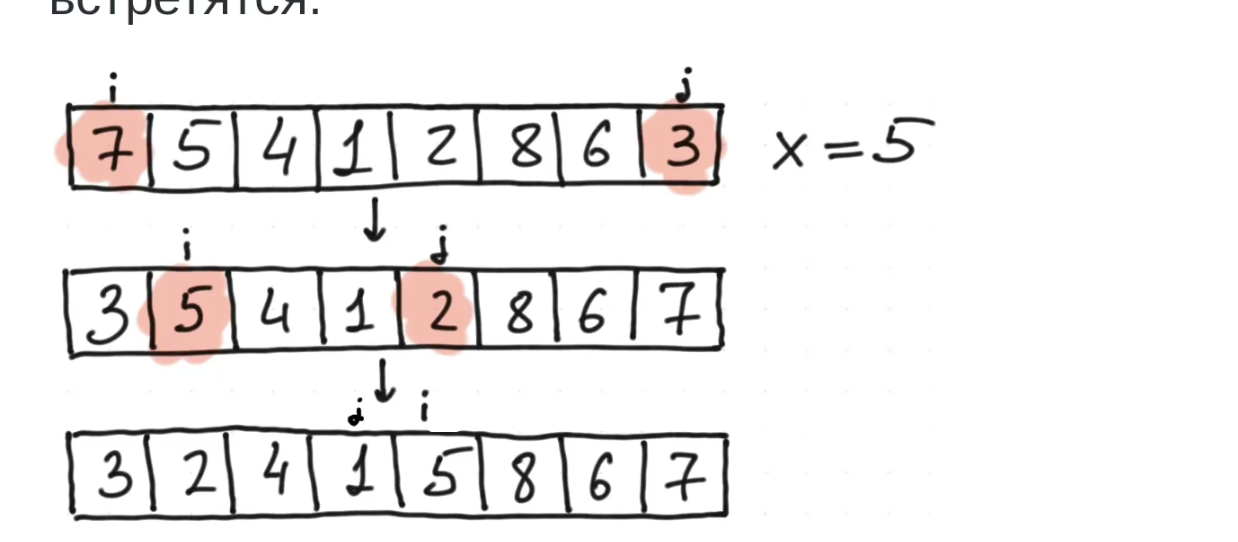 встретятся.
i j
7 5 4 1 2 8 6 3 x = 5
i j
3 5 4 1 2 8 6 7
j i
3 2 4 1 5 8 6 7